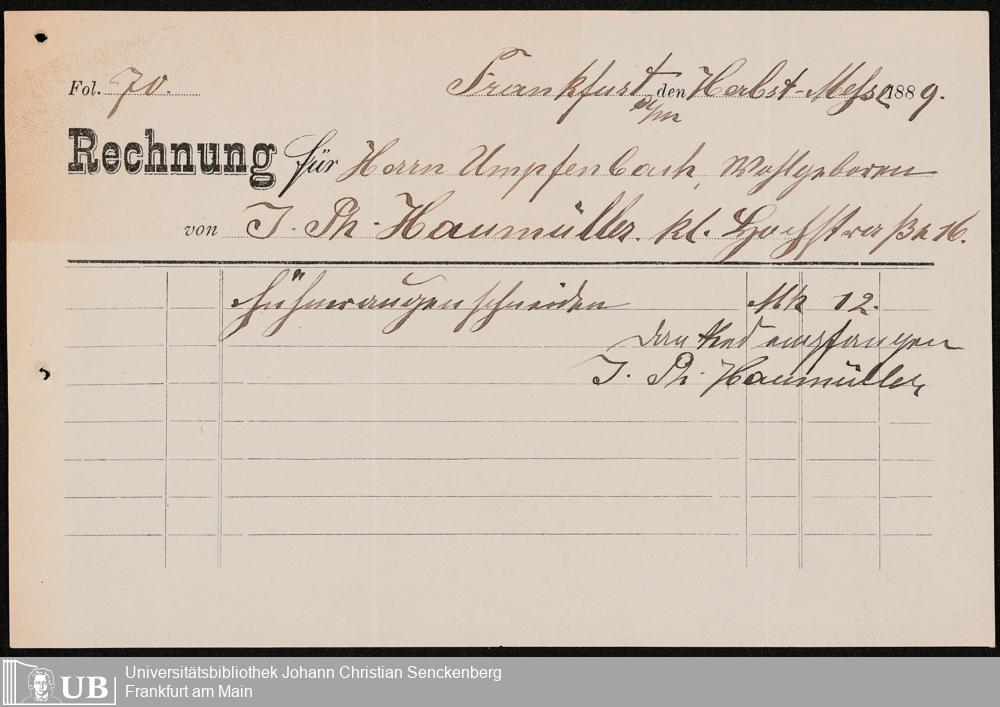 Fol. 70. Frankfurt a/m den Herbst-Messe 1889.
Rechnung für Herrn Umpfenbach, Wohlgeboren
von J. Ph. Haumüller. kl. Hochstraße 16.
Hühneraugenschneiden Mk 12.
dankend empfangen
J. Ph. Haumüller,
UB
Universitätsbibliothek Johann Christian Senckenberg
Frankfurt am Main